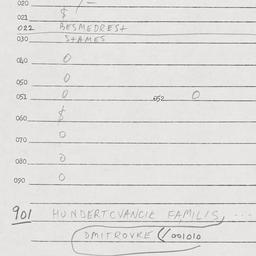 020
021 $
022 BESMEDREST
030 STAMES
040 0
050 0
051 0 052 0
060 $
070 0
080 0
090 0
901 HUNDERTCVANCIE FAMILIS, ...
DMITROVKE (/001010